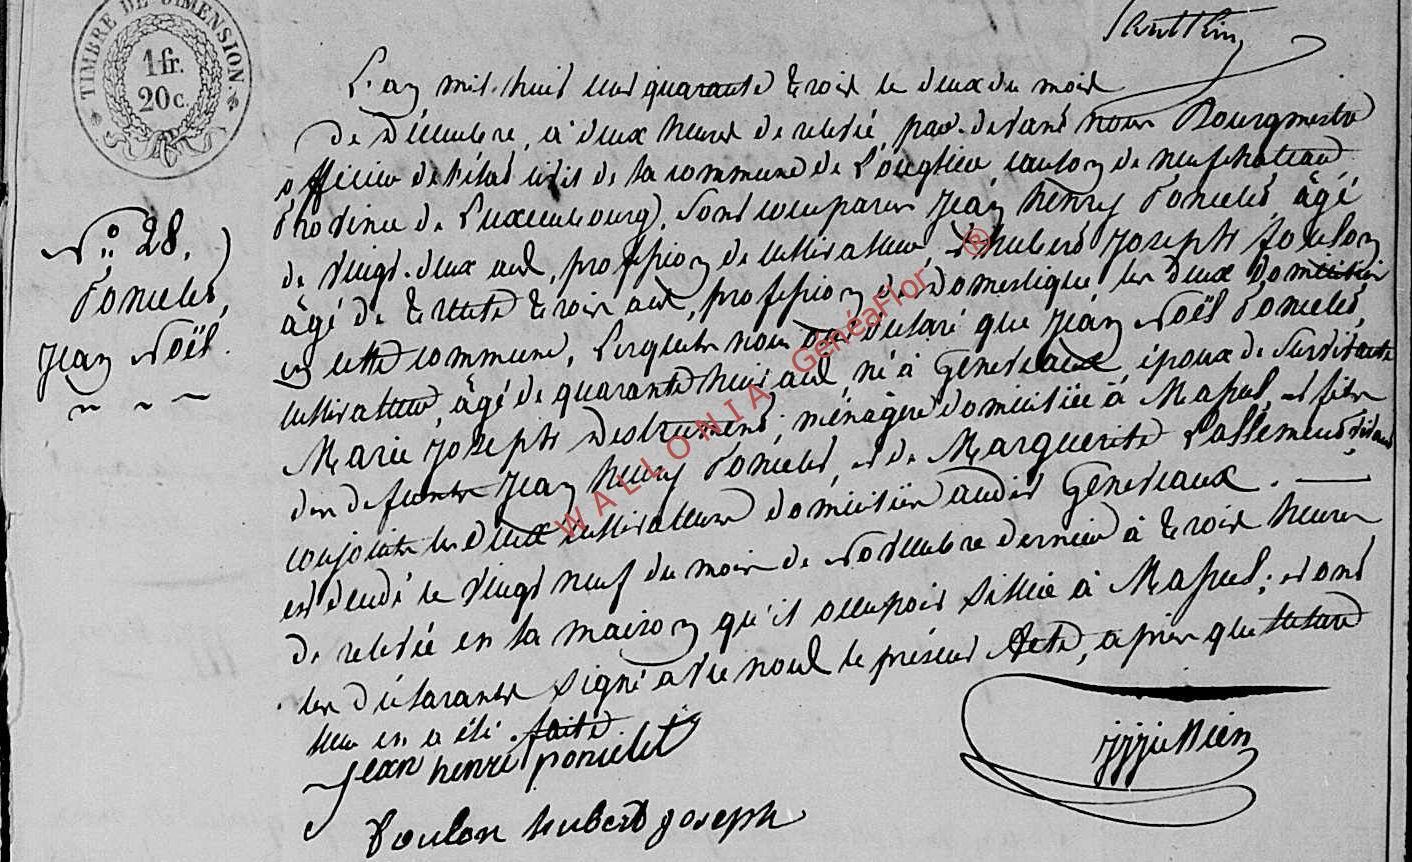 TIMBRE DE DIMENSION
1 fr.
20 c.
L'an mil huit cent quarante trois le deux du mois
de Décembre, à deux heures de relevée, par devant nous Bourgmestre
officier de l'état civil de la commune de Longlier canton de neufchateau
Province de Luxembourg, sont comparus Jean henry Poncelet, âgé
de vingt-deux ans, profession de cultivateur, & hubert Joseph Toulon
âgé de trente trois ans, profession de Domestique les deux domiciliés
en cette commune, lesquels nous ont déclaré que Jean Noël Poncelet,
cultivateur, âgé de quarante huit ans, né à Genevaux époux de survivante
Marie Joseph, ménagère domiciliée à Massul, et fils
des défunts Jean henry Poncelet, et de Marguerite
conjoints les deux cultivateurs domiciliés audit Genevaux.
est décédé le vingt neuf du mois de Novembre dernier à trois heures
de relevée en la maison qu'il occupoit située à Massul; et ont
les déclarants signé avec nous le présent Acte, après que lecture
leur en a été faite
N° 28.
Poncelet,
Jean Noël.
Jean henri poncelet
Toulon hubert joseph
WALLONIA GenéaFlor ®